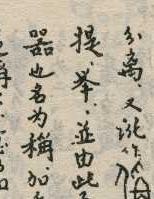 分離，又訛作偁
提、舉，並由此
器也名为稱，加